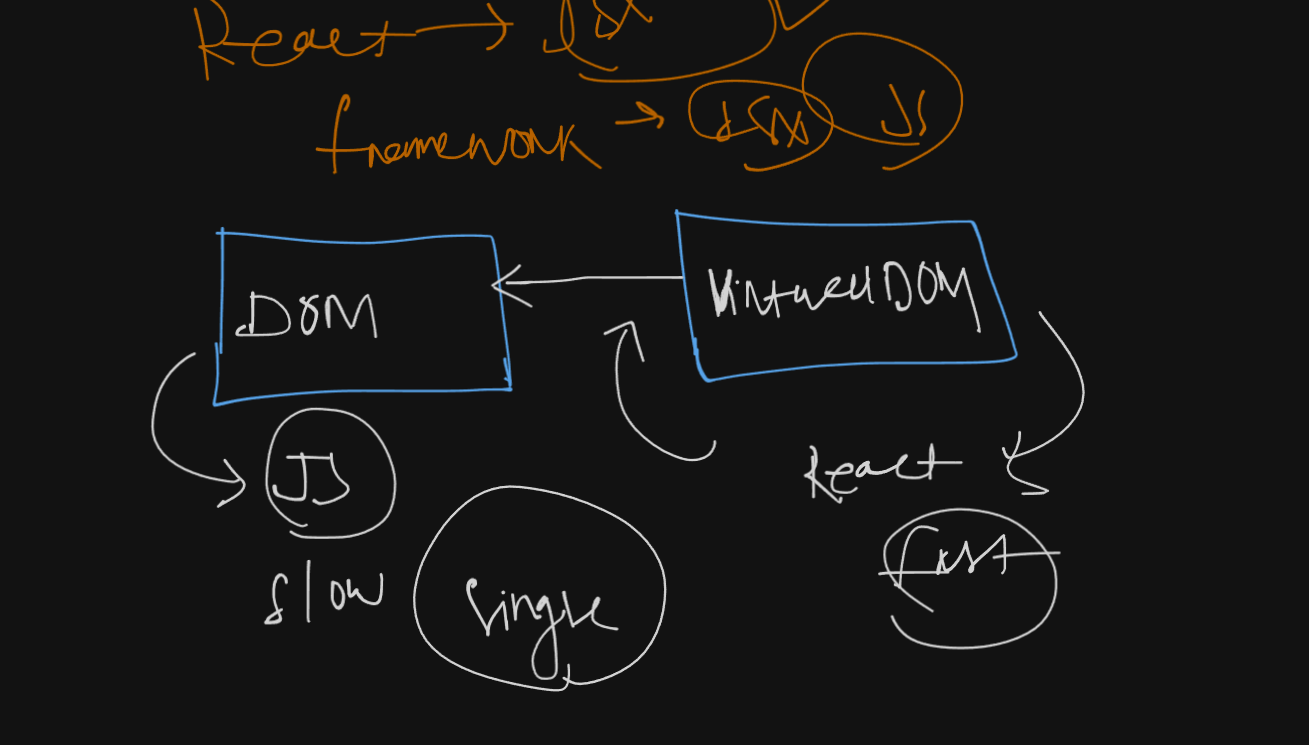 React → JSX
framework → JSX JS
DOM
Virtual DOM
JS
React
slow
Single
fast